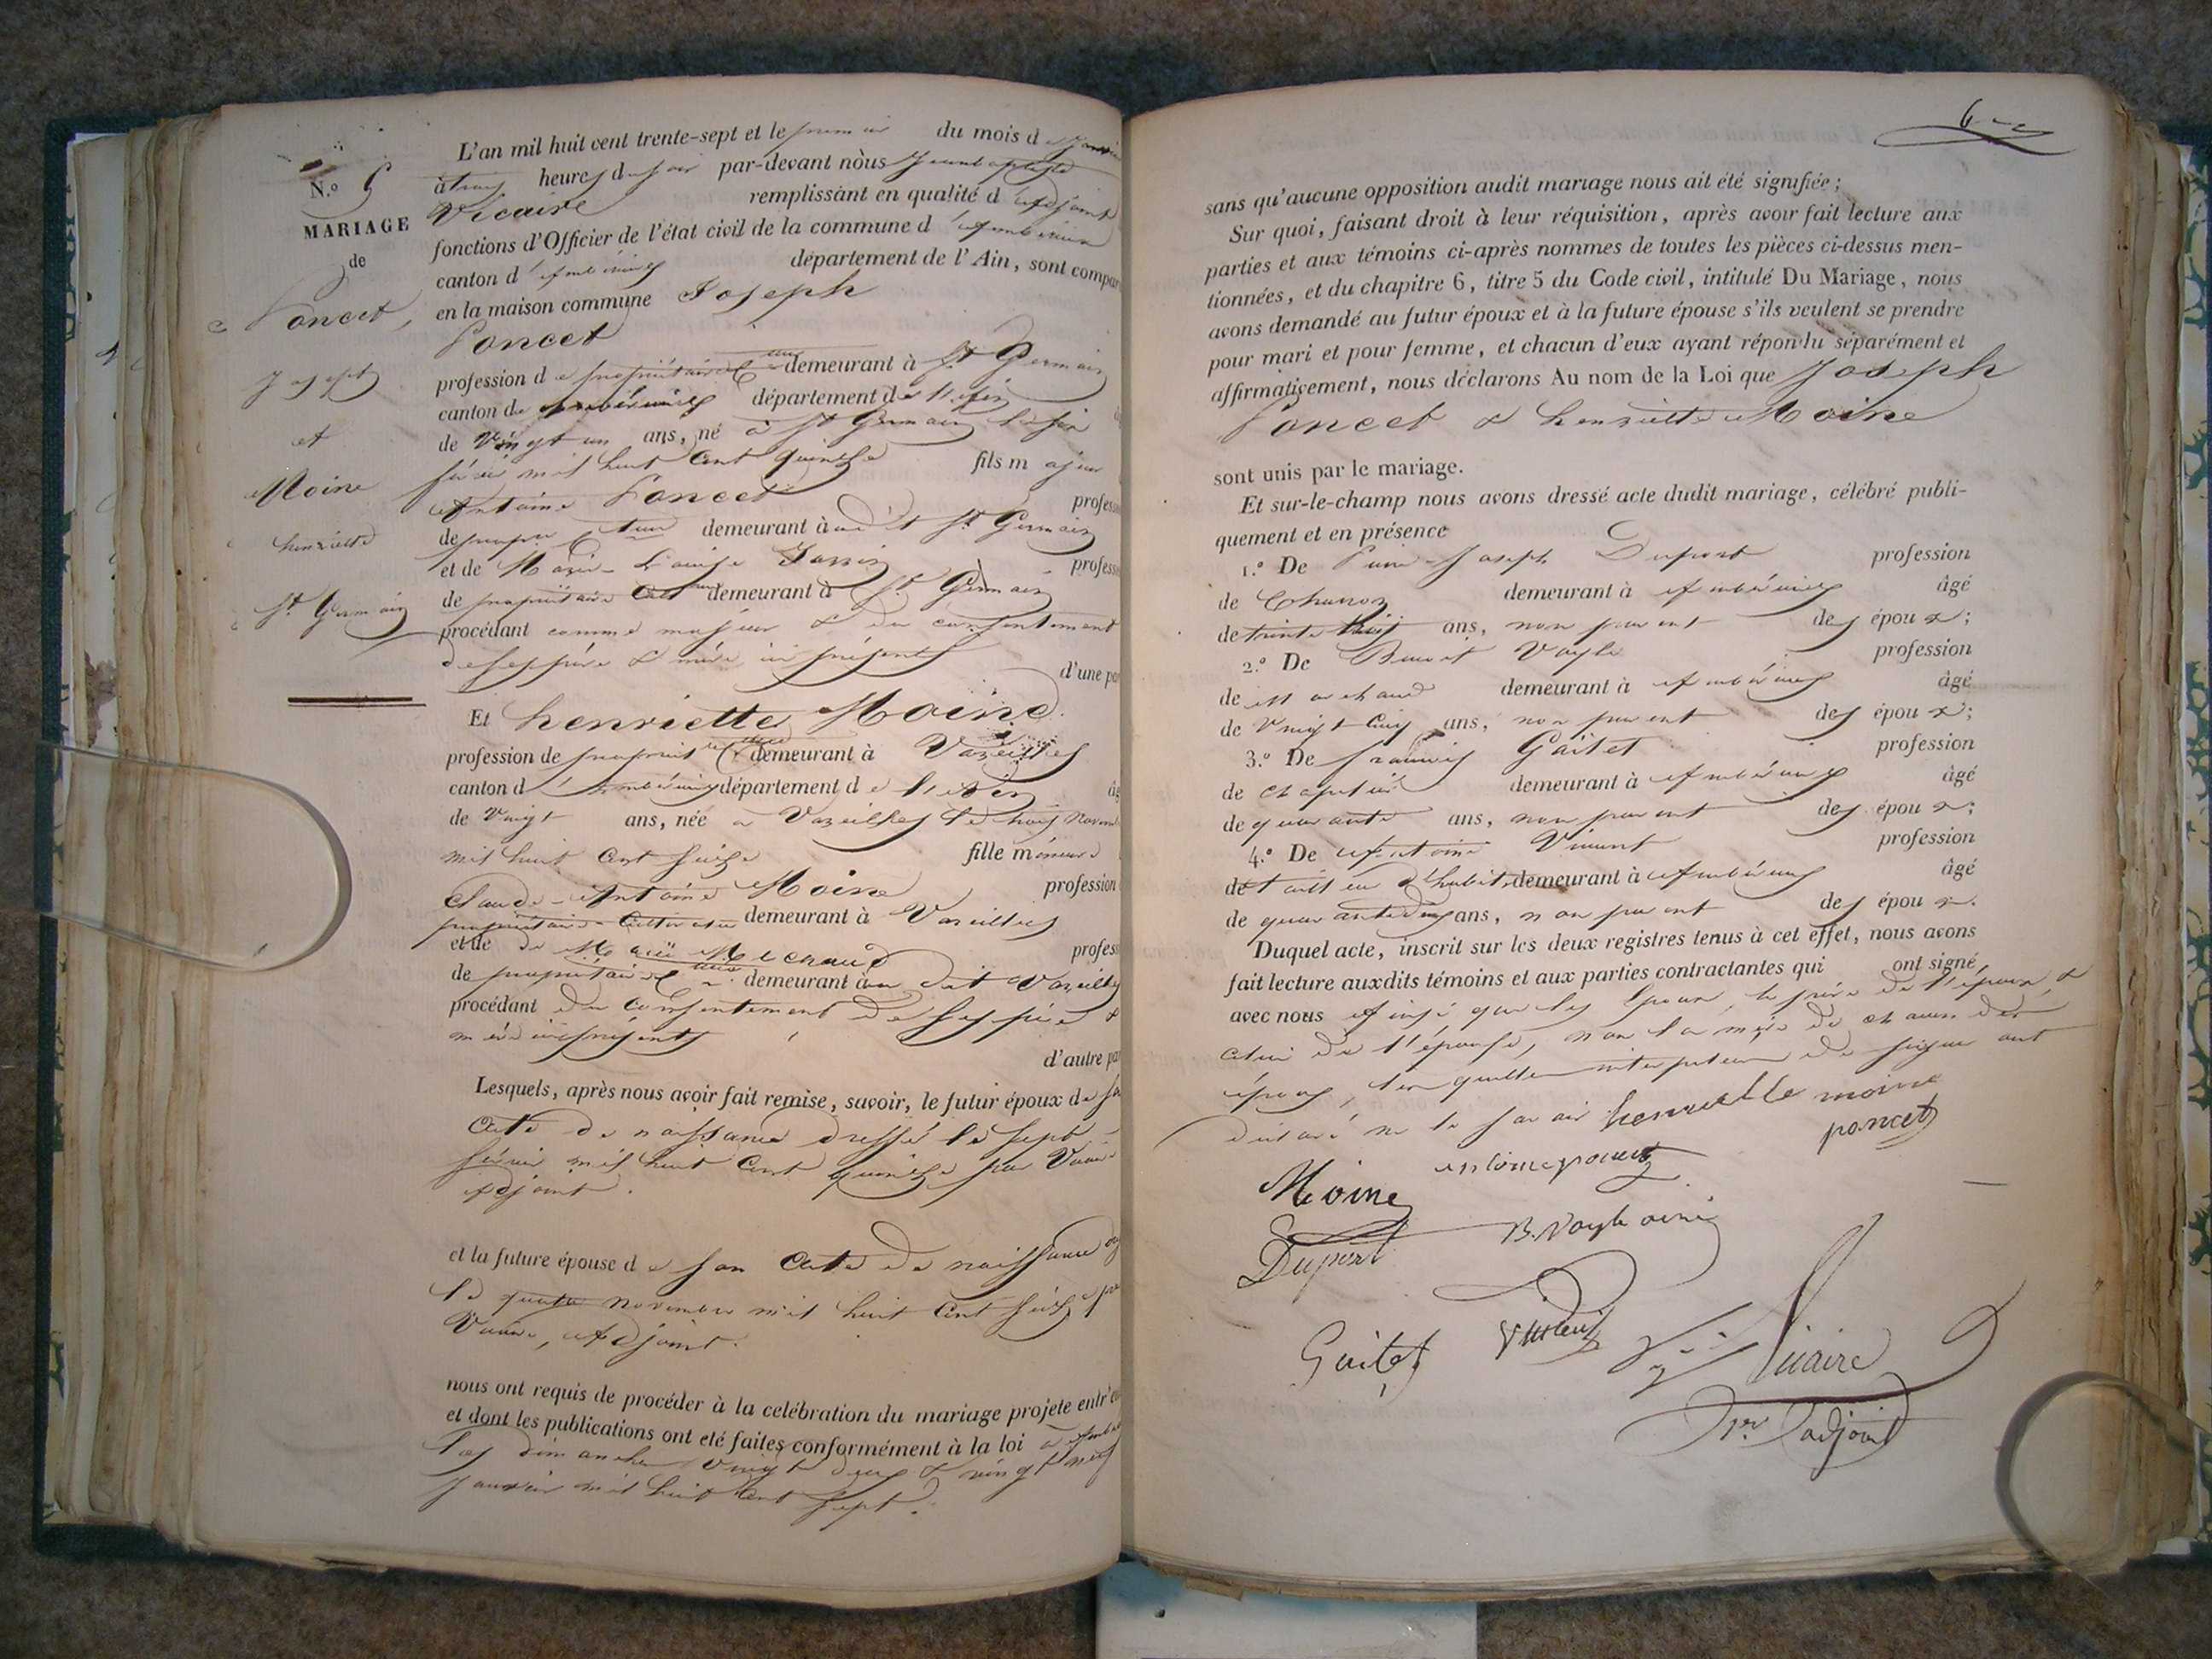 L'an mil huit cent trente-sept et le premier du mois d
N.º 6
à trois heures du soir par-devant nous Jean baptiste
Vicaire remplissant en qualité d'adjoint
MARIAGE
fonctions d'Officier de l'état civil de la commune d'Ambérieux
de
canton d'Ambérieux département de l'Ain, sont compar
Poncet,
en la maison commune Joseph
Poncet
Joseph
profession de propriétaire demeurant à St Germain
canton de département de l'Ain
et
de Vingt un ans, né à St Germain le six
Moine
février mil huit Cent quinze fils majeur
Antoine Poncet profess
henriette
de demeurant à St Germain
et de Marie-Louise profess
St Germain
de propriétaire demeurant à St Germain
procédant comme majeur & du consentement
de ses père & mère ici présents
d'une par
Et henriette Moine
profession de demeurant à Vareilles
canton d'Ambérieux département de l'Ain âg
de Vingt ans, née à Vareilles le trois Novemb
mil huit Cent seize fille mineure
Claude-Antoine Moine profession
propriétaire-Cultivateur demeurant à Vareilles
et de profess
de propriétaire demeurant au dit Vareilles
procédant du Consentement de ses père &
mère ici présents
d'autre par
Lesquels, après nous avoir fait remise, savoir, le futur époux de so
acte de naissance dressé le sept
février mil huit Cent quinze par Vicaire
Adjoint.
et la future épouse de son acte de naissance
le quatre Novembre mil huit Cent seize
Vicaire, Adjoint.
nous ont requis de procéder à la célébration du mariage projeté entr'eu
et dont les publications ont été faites conformément à la loi à
les dimanches vingt deux & vingt neuf
janvier mil huit Cent sept.
6
sans qu'aucune opposition audit mariage nous ait été signifiée;
Sur quoi, faisant droit à leur réquisition, après avoir fait lecture aux
parties et aux témoins ci-après nommes de toutes les pièces ci-dessus men-
tionnées, et du chapitre 6, titre 5 du Code civil, intitulé Du Mariage, nous
avons demandé au futur époux et à la future épouse s'ils veulent se prendre
pour mari et pour femme, et chacun d'eux ayant répondu séparément et
affirmativement, nous déclarons Au nom de la Loi que Joseph
Poncet & henriette Moine
sont unis par le mariage.
Et sur-le-champ nous avons dressé acte dudit mariage, célébré publi-
quement et en présence
1.º De Pierre-Joseph Dupont profession
de Charron demeurant à Ambérieux âgé
de trente trois ans, non parent des époux;
2.º De Benoit Vayle profession
de Marchand demeurant à Ambérieux âgé
de Vingt Cinq ans, non parent des époux;
3.º De François Gaitet profession
de chapelier demeurant à Ambérieux âgé
de quarante ans, non parent des époux;
4.º De Antoine Vincent profession
de tailleur d'habits demeurant à Ambérieux âgé
de quarante deux ans, non parent des époux.
Duquel acte, inscrit sur les deux registres tenus à cet effet, nous avons
fait lecture auxdits témoins et aux parties contractantes qui ont signé
avec nous ainsi que les époux, le père de l'époux, &
celui de l'épouse, non la mère de chacun des
époux, lesquelles interpellées de signer ont
déclaré ne le savoir henriette moine
poncet
Moine antoine poncet
Dupont B. Vayle ainé
Gaitet Vincent
Vicaire
1er adjoint